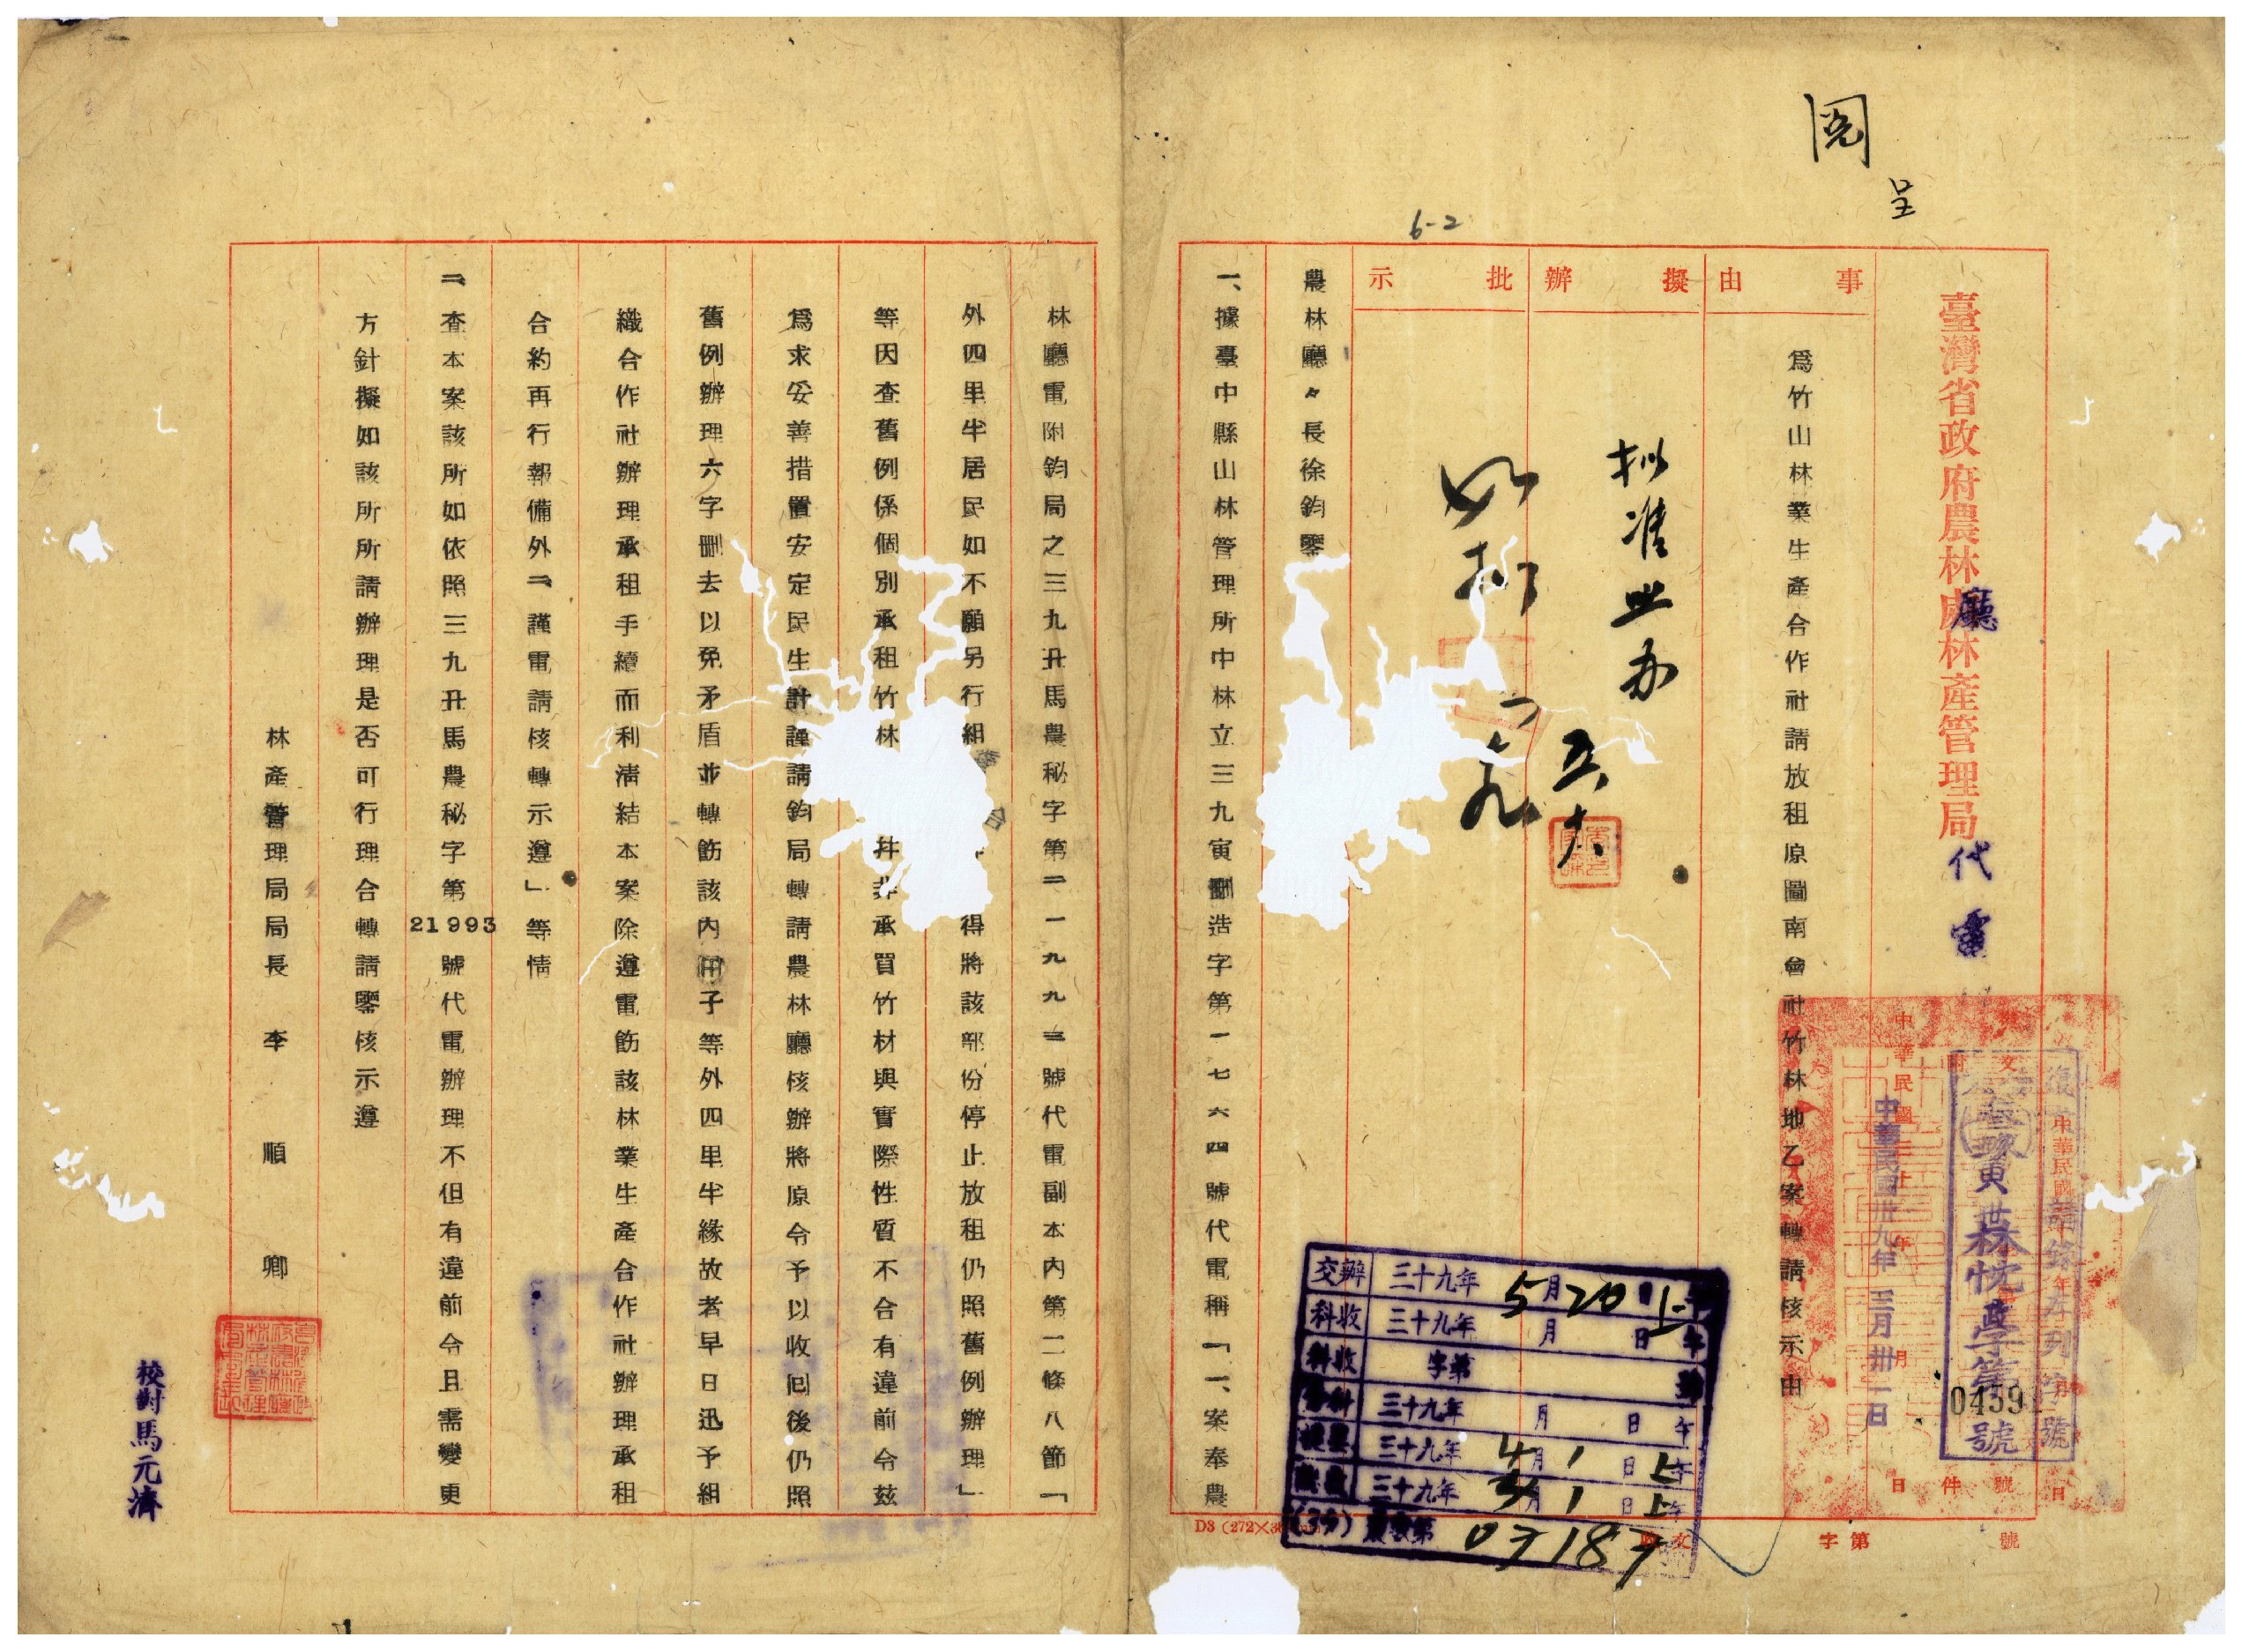 呈
6-2
臺灣省政府農林廳林產管理局代電
事由
擬辦
批示
為竹山林業生產合作社請放租原圖南會社竹林地乙案轉請核示由
拟准照办
五六
如拟
農林廳々長徐鈞鑒
一、據臺中縣山林管理所中林立三九寅刪造字第一七六四號代電稱「一、案奉農
林廳電附鈞局之三九丑馬農秘字第二一九九三號代電副本內第二條八節「
外四里半居民如不願另行組 得將該部份停止放租仍照舊例辦理」
等因查舊例係個別承租竹林 并非承買竹材與實際性質不合有違前令茲
為求妥善措置安定民生計謹請鈞局轉請農林廳核辦將原令予以收回後仍照
舊例辦理六字刪去以免矛盾並轉飭該內 子等外四里半緣故者早日迅予組
織合作社辦理承租手續而利清結本案除遵電飭該林業生產合作社辦理承租
合約再行報備外二、謹電請核轉示遵」等情
二、查本案該所如依照三九丑馬農秘字第21993號代電辦理不但有違前令且需變更
方針擬如該所所請辦理是否可行理合轉請鑒核示遵
林產管理局局長 李順卿
校對馬元濟
中華民國卅九年三月卅一日
號
交辦 三十九年5月20日上午
科收 三十九年 月 日 午
科收 字第 號
三十九年 月 日 午
三十九年4月1日上午
三十九年 月1日上午
(39) 第03187
D3 (272×3
字第 號